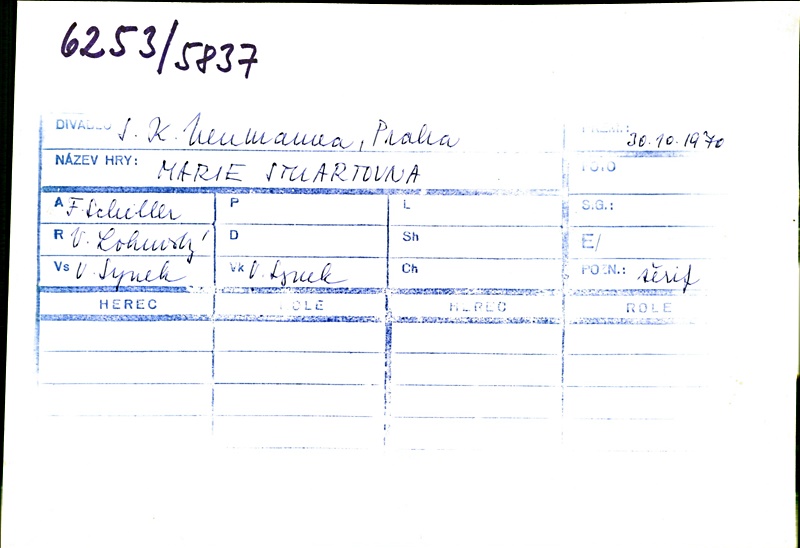 6253/5837
DIVADLO S. K. Neumanna, Praha PREM.: 30.10.1970
NÁZEV HRY: MARIE STUARTOVNA FOTO
A F. Schiller P L S.G.:
R V. Lohniský D Sh E/
Vs V. Synek Vk V. Synek Ch POZN.: šerif
HEREC ROLE HEREC ROLE